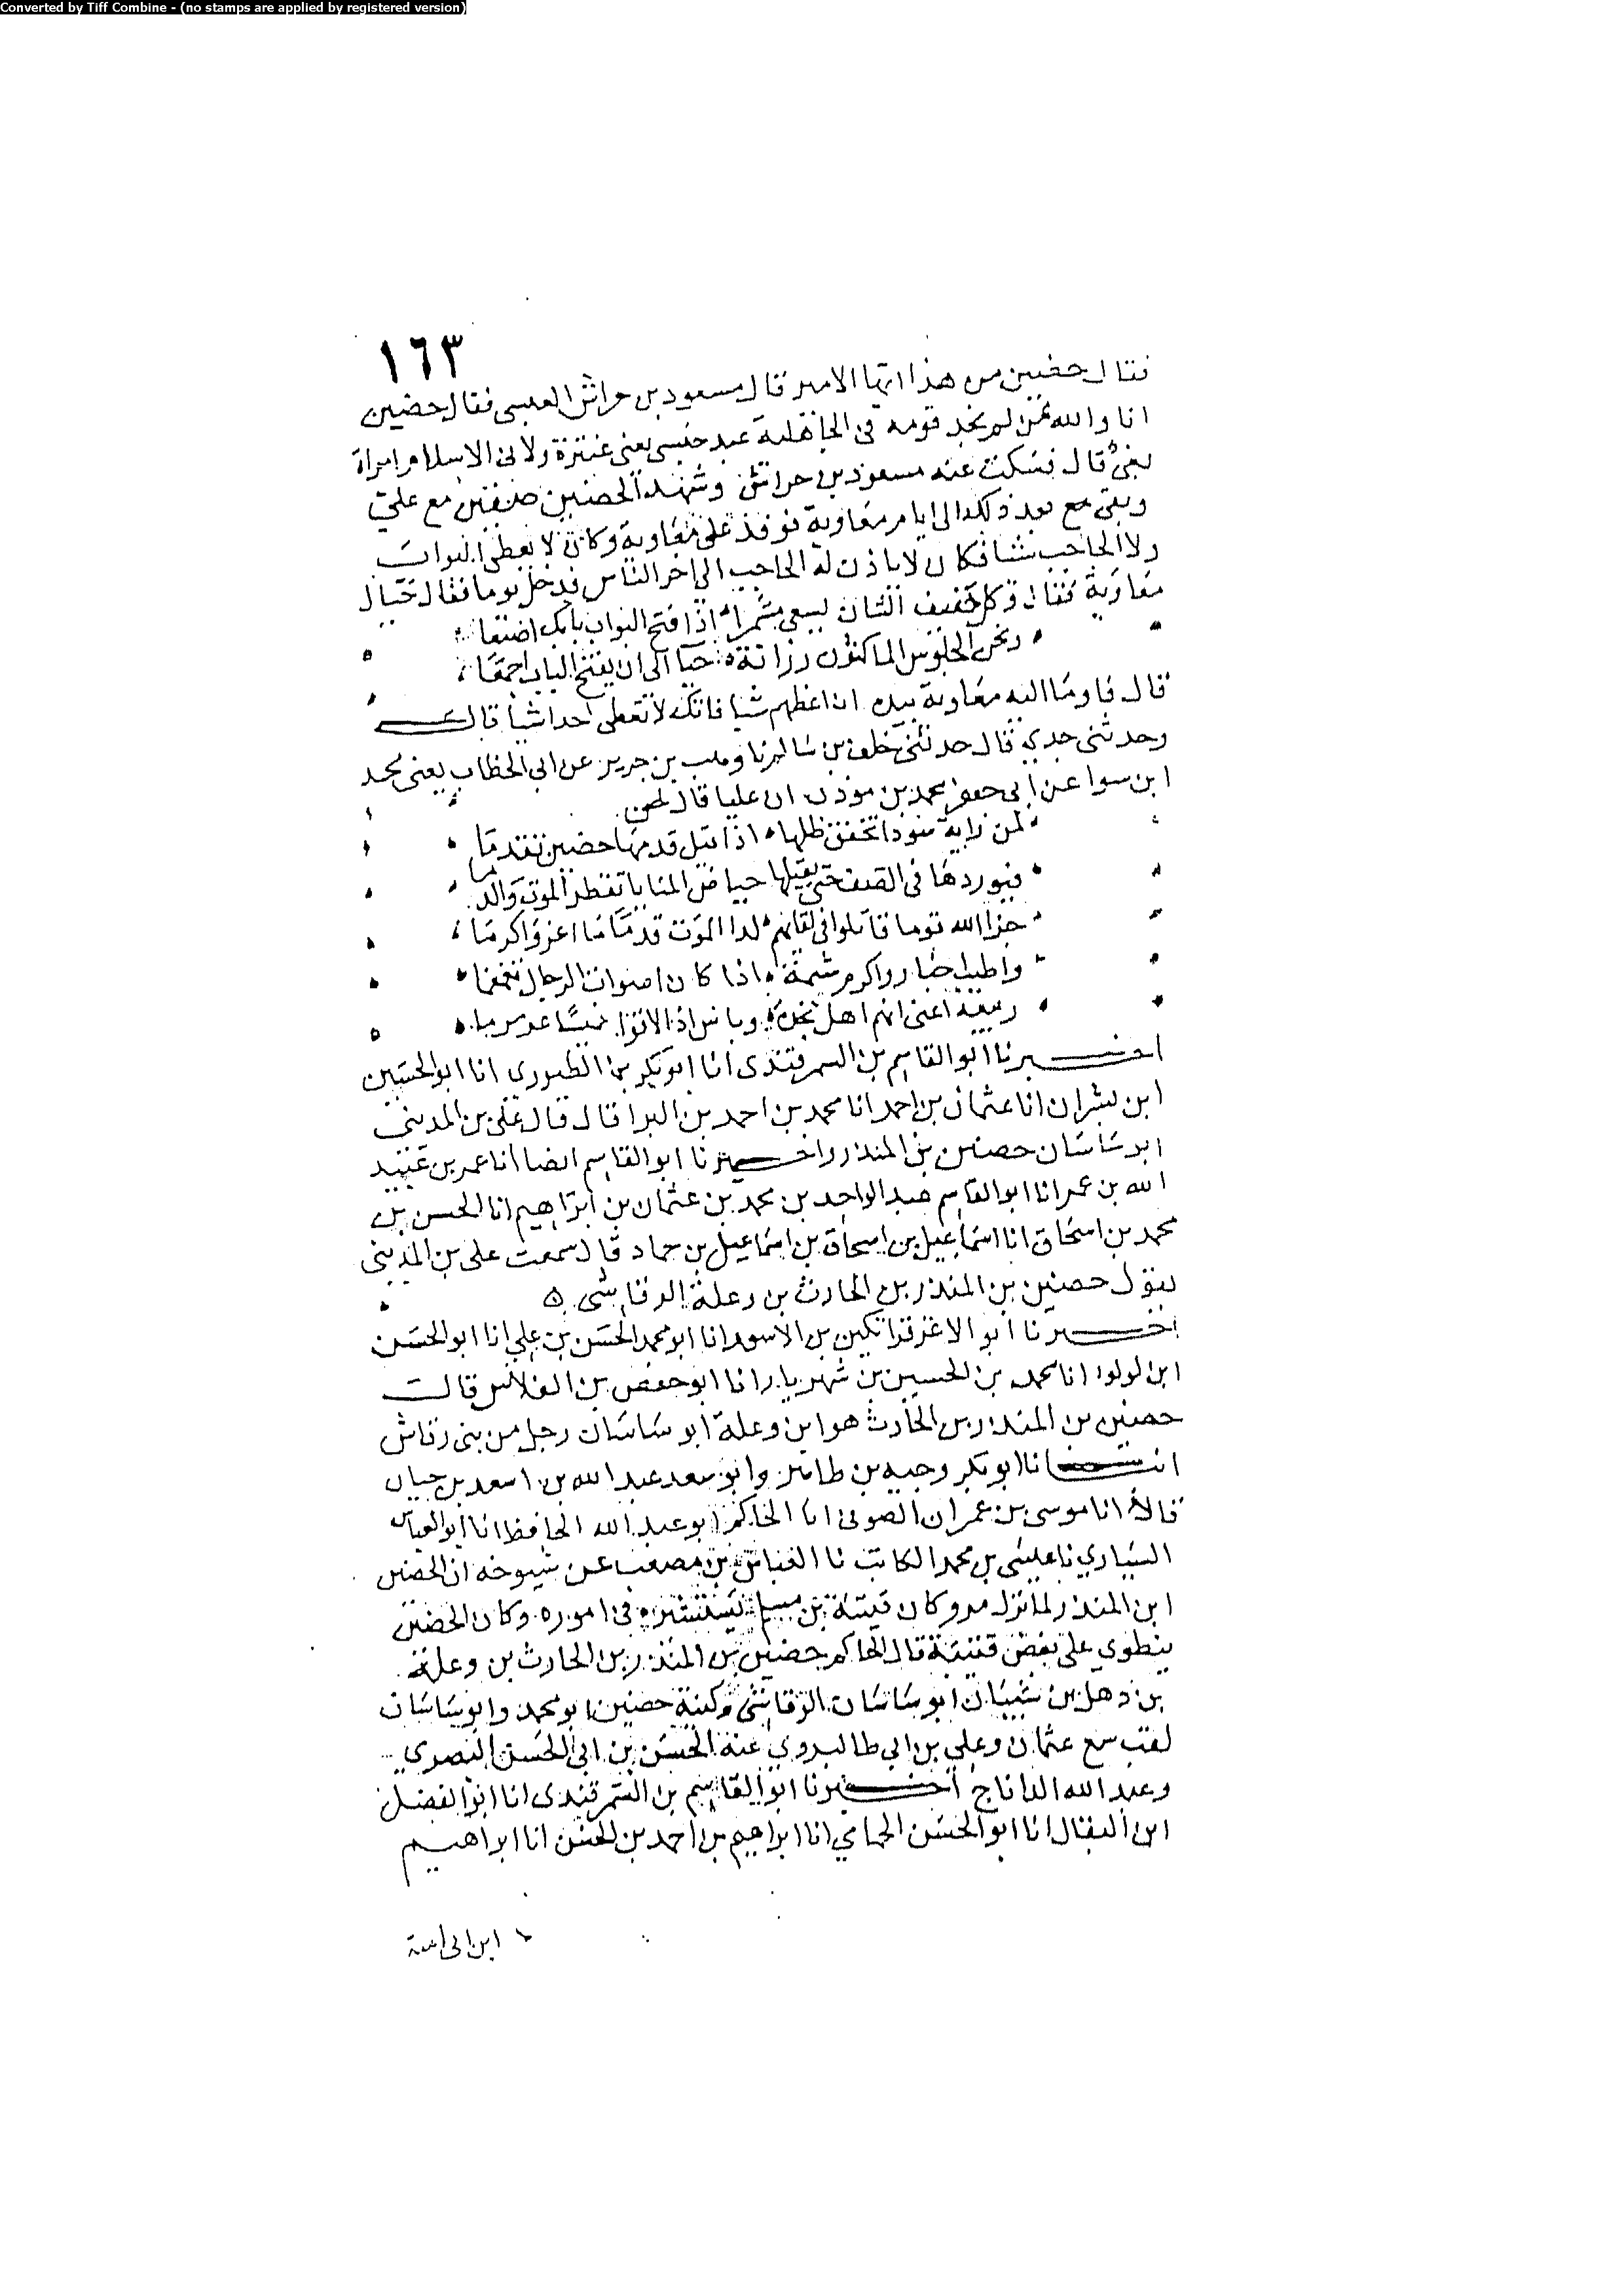 Converted by Tiff Combine - (no stamps are applied by registered version)
١٦٣
فقال حضين من هذا ايها الامير قال مسعود بن حراش العبسى فقال حضين
انا والله ممن لم يجد قومه فى الجاهلية عبد حبشى يعنى عنترة ولا فى الاسلام امراة
بغى قال فسكت عنه مسعود بن حراش وشهد الحضين صفين مع على
وبقى بعد ذلك الى ايام معاوية فوفد على معاوية وكان لا يعطى البواب
ولا الحاجب شيا فكان لا ياذن له الحاجب الى اخر الناس فدخل يوما فقال
معاوية فقال وكل خفيف الشان يسعى مشمرا اذا فتح البواب بابك اصبعا
ونحن الجلوس الماكثون رزانة حيا الى ان يفتح الباب اجمعا
قال فاومَا اليه معاوية بيده ان اعطهم شيا فانك لا تعطى احدا شيا قال
وحدثنى جدي قال حدثنى خلف بن سالم نا وهب بن جرير عن ابى الخطاب يعنى محمد
ابن سوا عن ابى جعفر محمد بن مروان ان عليا قال
لمن راية سودا تخفق ظلها اذا قيل قدمها حضين تقدما
فيوردها فى الصف حتى يقيلها حياض المنايا تقطر الموت والدما
جزا الله قوما قاتلوا فى لقائهم لدا الموت قدما ما اعز واكرما
واطيب اخبارا واكرم شيمة اذا كان اصوات الرجال تغمغما
ربيعة اعنى انهم اهل نجدة وباس اذا لاقوا خميسا عرمرما
اخبرنا ابو القاسم بن السمرقندى انا ابو بكر بن الطبورى انا ابو الحسين
ابن بشران انا عثمان بن احمد انا محمد بن احمد بن البرا قال قال على بن المدينى
ابو ساسان حصين بن المنذر واخبرنا ابو القاسم ايضا انا عمر بن عبيد
الله بن عمر انا ابو القاسم عبد الواحد بن محمد بن عثمان بن ابراهيم انا الحسن بن
محمد بن اسحاق انا اسماعيل بن اسحاق بن اسماعيل بن حماد قال سمعت على بن المدينى
يقول حصين بن المنذر بن الحارث بن وعلة الرقاشى ه
اخبرنا ابو الاغر قراتكين بن الاسعد انا ابو محمد الحسن بن علي انا ابو الحسن
ابن لولو انا محمد بن الحسين بن شهريار انا ابو حفص بن الفلاس قال
حصين بن المنذر بن الحارث هو ابن وعلة ابو ساسان رجل من بنى رقاش
انا ابو بكر وجيه بن طاهر وابو سعد عبد الله بن اسعد بن حيان
قالا انا موسى بن عمران الصوفى انا الحاكم ابو عبد الله الحافظ انا ابو العباس
السياري نا عيسى بن محمد الكاتب نا العباس بن مصعب عن شيوخه ان الحضين
ابن المنذر لما نزل مرو وكان قيتبة بن مسلم يستشيره فى اموره وكان الحضين
ينطوي على بغض قتيبة قال الحاكم حضين بن المنذر بن الحارث بن وعلة
بن ذهل بن شيبان ابو ساسان الرقاشى وكنية حصين ابو محمد وابو ساسان
لقب سمع عثمان وعلي بن ابى طالب روي عنه الحسن بن ابى الحسن البصري
وعبد الله الداناج اخبرنا ابو القاسم بن السمرقندى انا ابو الفضل
ابن البقال انا ابو الحسن الحمامي انا ابراهيم بن احمد بن الحسن انا ابراهيم
ابن ابى امية